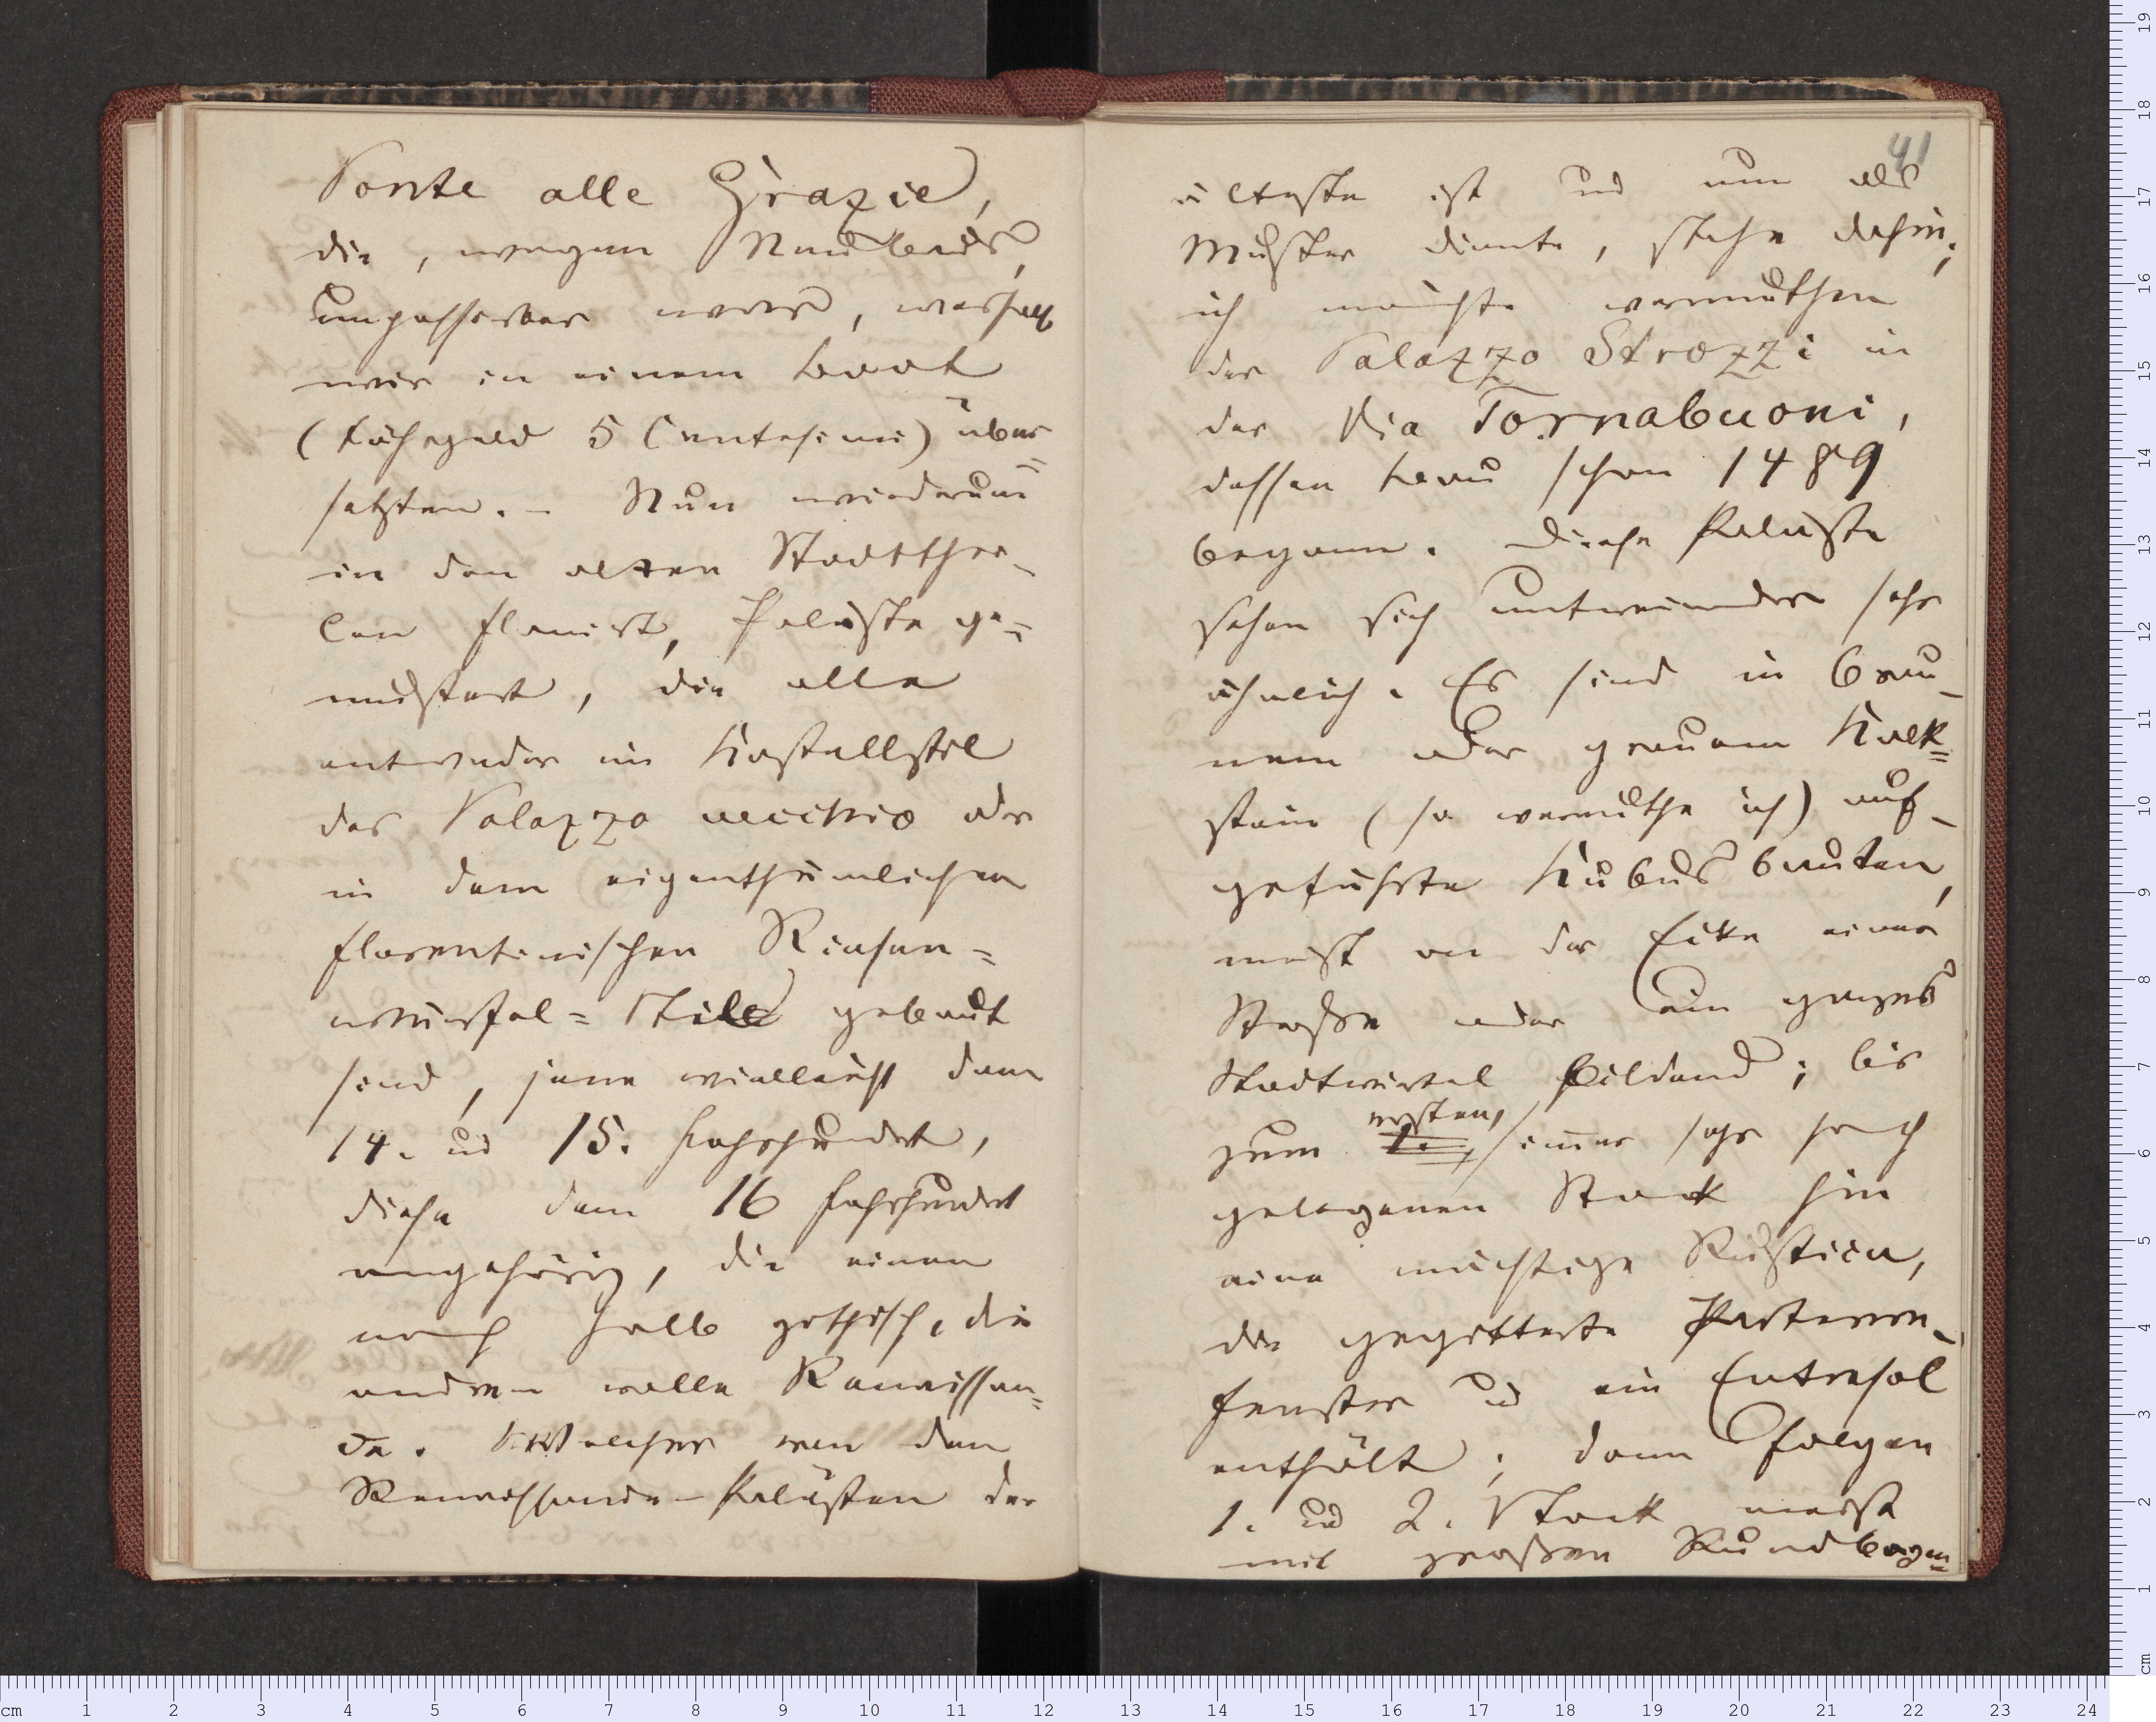 Ponte alle Grazie,
die, wegen Neubaus,
unpassirbar war, weshalb
wir in einem Boot
(Fährgeld 5 Centesimi) über=
setzten. – Nun wiederum
in den alten Stadtthei-
len flanirt, Paläste ge=
mustert, die alle
entweder im Kastellstil
des Palazzo vecchio oder
in dem eigenthümlichen
florentinischen Riesen=
würfel=Stile gebaut
sind, jene vielleicht dem
14. und 15. Jahrhundert,
diese dem 16 Jahrhundert
angehörig, die einen
noch halb gothisch, die
andren volle Renaissan=
ce. Welcher von den
Renaissance-Palästen der
41
älteste ist und nun als
Muster diente, stehe dahin;
ich möchte vermuthen
der Palazzo Strozzi in
der Via Tornabuoni,
dessen Bau schon 1489
begann. Diese Paläste
sehen sich untereinander sehr
ähnlich. Es sind in brau-
nem oder grauem Kalk=
stein (so vermuthe ich) auf-
geführte Kubus bauten,
meist an der Ecke einer
Straße oder ein ganzes
Stadtviertel bildend; bis
zum ersten, immer sehr hoch
gelegenen Stock hin
eine mächtige Rustica,
die gegitterte Parterre-
fenster und ein Entresol
enthält; dann folgen
1. und 2. Stock meist
mit großen Rundbogen=